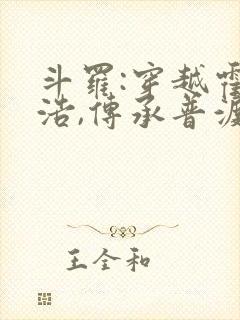 斗羅:穿越霍
浩,傳承普渡
王全和